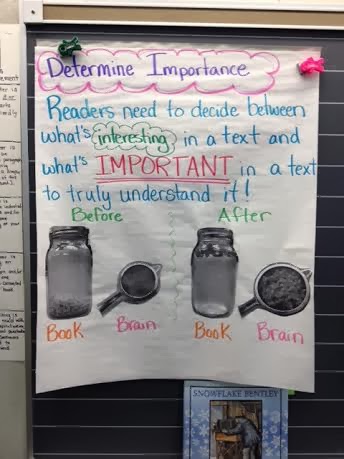 Determine Importance
Readers need to decide between
what's interesting in a text and
what's IMPORTANT in a text
to truly understand it!
Before After
Book Brain Book Brain
SNOWFLAKE BENTLEY